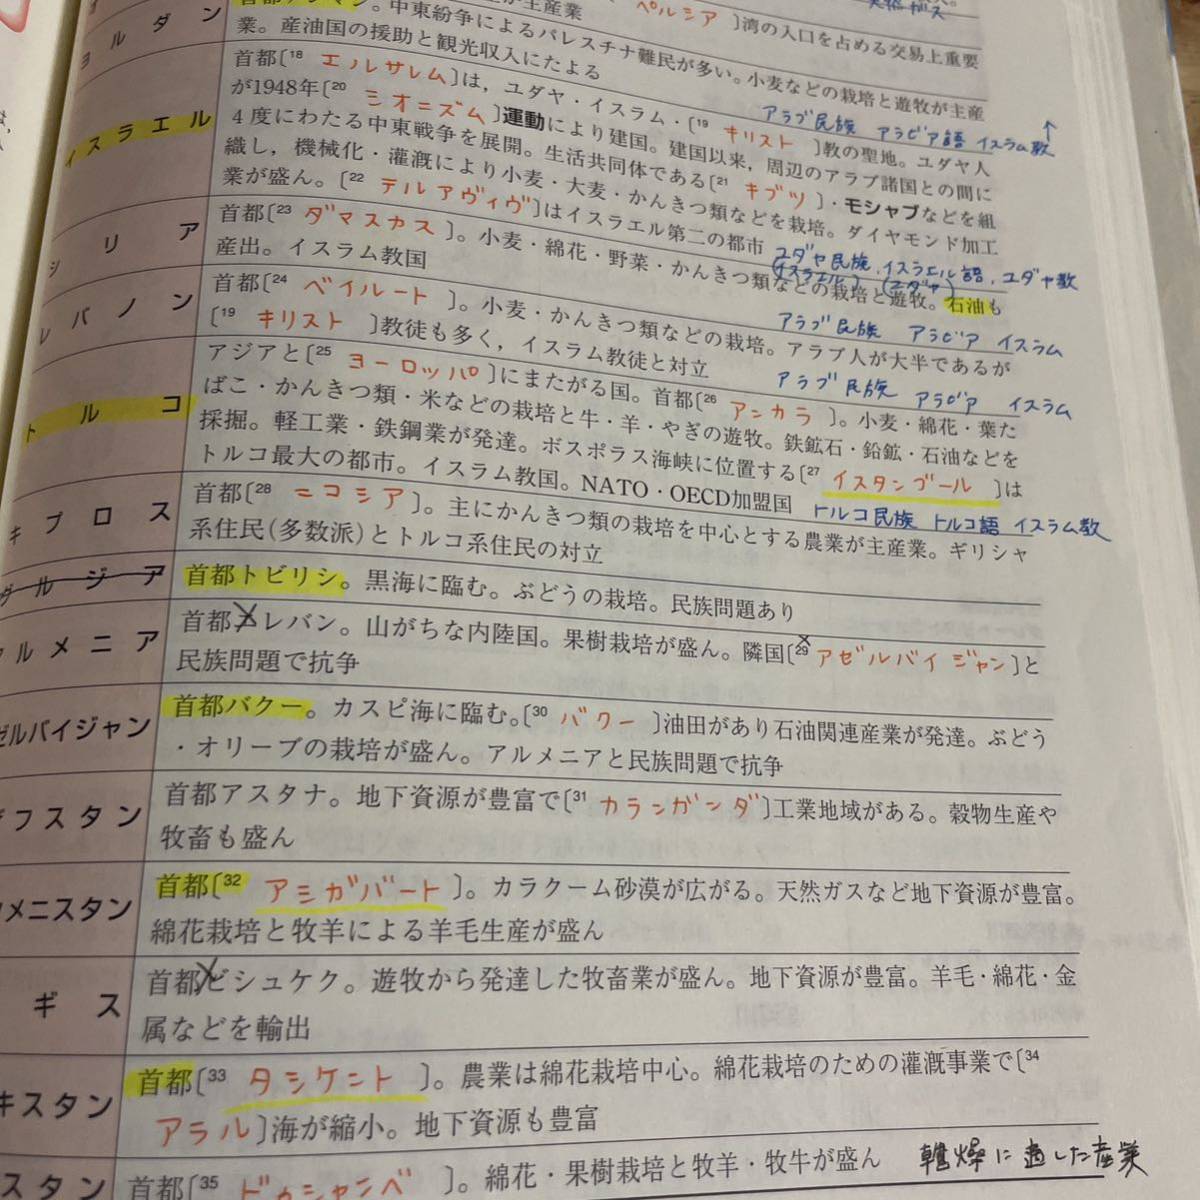 ペルシア 〕湾の入口を占める交易上重要
天然ガス
ヨルダン
首都アンマン。中東紛争によるパレスチナ難民が多い。小麦などの栽培と遊牧が主産
業。産油国の援助と観光収入にたよる
アラブ民族 アラビア語 イスラム教
イスラエル
首都〔18 エルサレム〕は，ユダヤ・イスラム・〔19 キリスト 〕教の聖地。ユダヤ人
が1948年〔20 シオニズム〕運動により建国。建国以来，周辺のアラブ諸国との間に
4度にわたる中東戦争を展開。生活共同体である〔21 キブツ 〕・モシャブなどを組
織し，機械化・灌漑により小麦・大麦・かんきつ類などを栽培。ダイヤモンド加工
業が盛ん。〔22 テルアヴィヴ〕はイスラエル第二の都市
ユダヤ民族，イスラエル語，ユダヤ教
(イスラエル) (ユダヤ)
シリア
首都〔23 ダマスカス 〕。小麦・綿花・野菜・かんきつ類などの栽培と遊牧。石油も
産出。イスラム教国
アラブ民族 アラビア イスラム
レバノン
首都〔24 ベイルート 〕。小麦・かんきつ類などの栽培。アラブ人が大半であるが
〔19 キリスト 〕教徒も多く，イスラム教徒と対立
アラブ民族 アラビア イスラム
トルコ
アジアと〔25 ヨーロッパ 〕にまたがる国。首都〔26 アンカラ 〕。小麦・綿花・葉た
ばこ・かんきつ類・米などの栽培と牛・羊・やぎの遊牧。鉄鉱石・鉛鉱・石油などを
採掘。軽工業・鉄鋼業が発達。ボスポラス海峡に位置する〔27 イスタンブール 〕は
トルコ最大の都市。イスラム教国。NATO・OECD加盟国
トルコ民族 トルコ語 イスラム教
キプロス
首都〔28 ニコシア 〕。主にかんきつ類の栽培を中心とする農業が主産業。ギリシャ
系住民(多数派)とトルコ系住民の対立
グルジア
首都トビリシ。黒海に臨む。ぶどうの栽培。民族問題あり
アルメニア
首都エレバン。山がちな内陸国。果樹栽培が盛ん。隣国〔29 アゼルバイジャン〕と
民族問題で抗争
ゼルバイジャン
首都バクー。カスピ海に臨む。〔30 バクー 〕油田があり石油関連産業が発達。ぶどう
・オリーブの栽培が盛ん。アルメニアと民族問題で抗争
ザフスタン
首都アスタナ。地下資源が豊富で〔31 カランガンダ〕工業地域がある。穀物生産や
牧畜も盛ん
クメニスタン
首都〔32 アシガバート 〕。カラクーム砂漠が広がる。天然ガスなど地下資源が豊富。
綿花栽培と牧羊による羊毛生産が盛ん
ギス
首都ビシュケク。遊牧から発達した牧畜業が盛ん。地下資源が豊富。羊毛・綿花・金
属などを輸出
キスタン
首都〔33 タシケント 〕。農業は綿花栽培中心。綿花栽培のための灌漑事業で〔34
アラル〕海が縮小。地下資源も豊富
スタン
首都〔35 ドゥシャンベ 〕。綿花・果樹栽培と牧羊・牧牛が盛ん
乾燥に適した産業